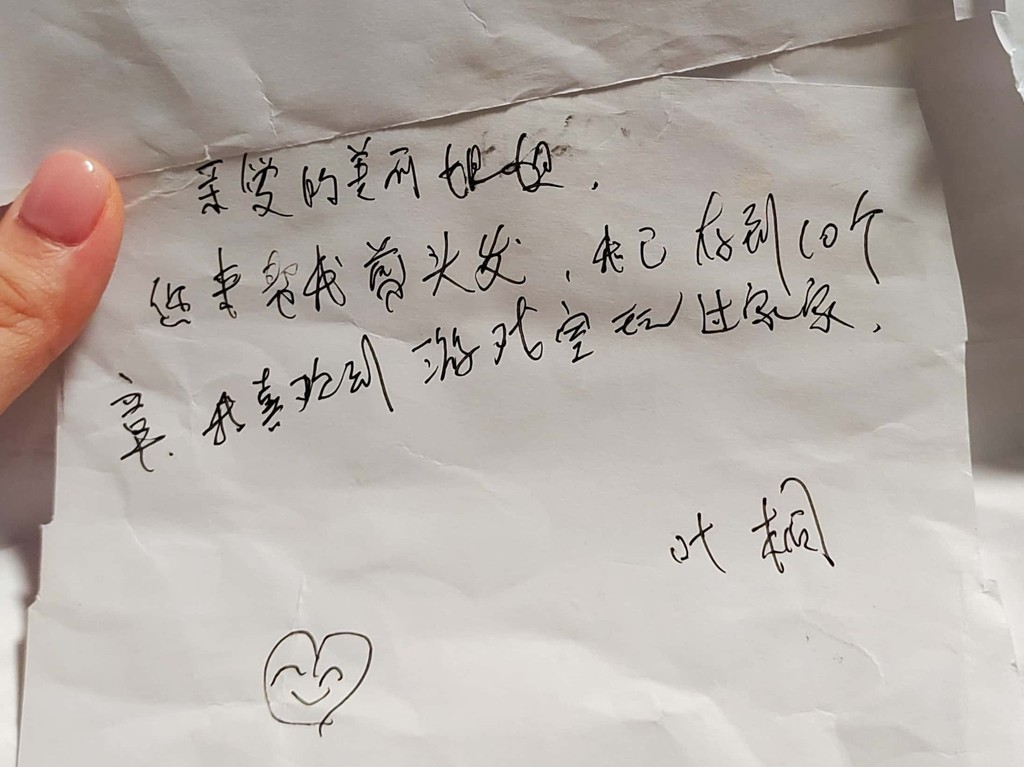 亲爱的美可姐姐,
您来帮我剪头发,我已存到10个
章.我喜欢到游戏室玩过家家,
叶桐